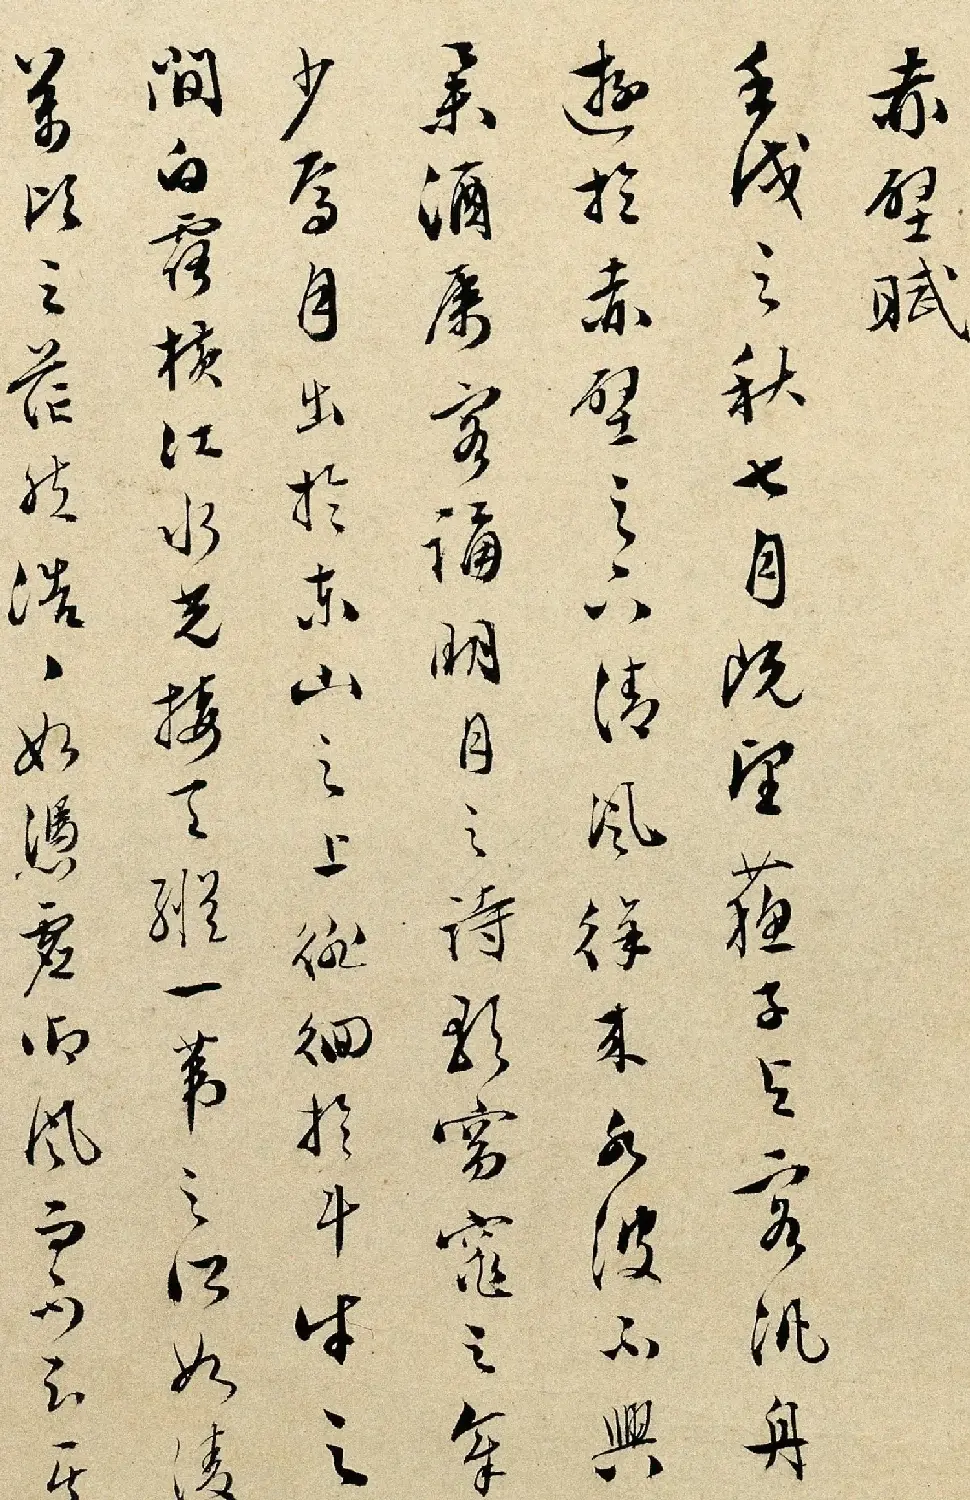 赤壁賦
壬戌之秋七月既望蘇子与客汎舟
遊於赤壁之下清風徐来水波不興
舉酒屬客誦明月之詩歌窈窕之章
少焉月出於東山之上徘徊於斗牛之
間白露橫江水光接天縱一葦之所如凌
萬頃之茫然浩〻如憑虛御風而不知其